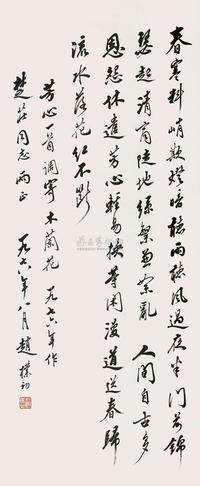 春寒料峭欺燈暗聽雨聽風過夜半門前錦
瑟起清商陡地絲繁兼絮亂 人間自古多
恩怨休遣芳心輕易換等閒漫道送春歸
流水落花紅不斷
芳心一首調寄木蘭花 一九七六年作
楚莊同志兩正
一九七八年一月趙樸初